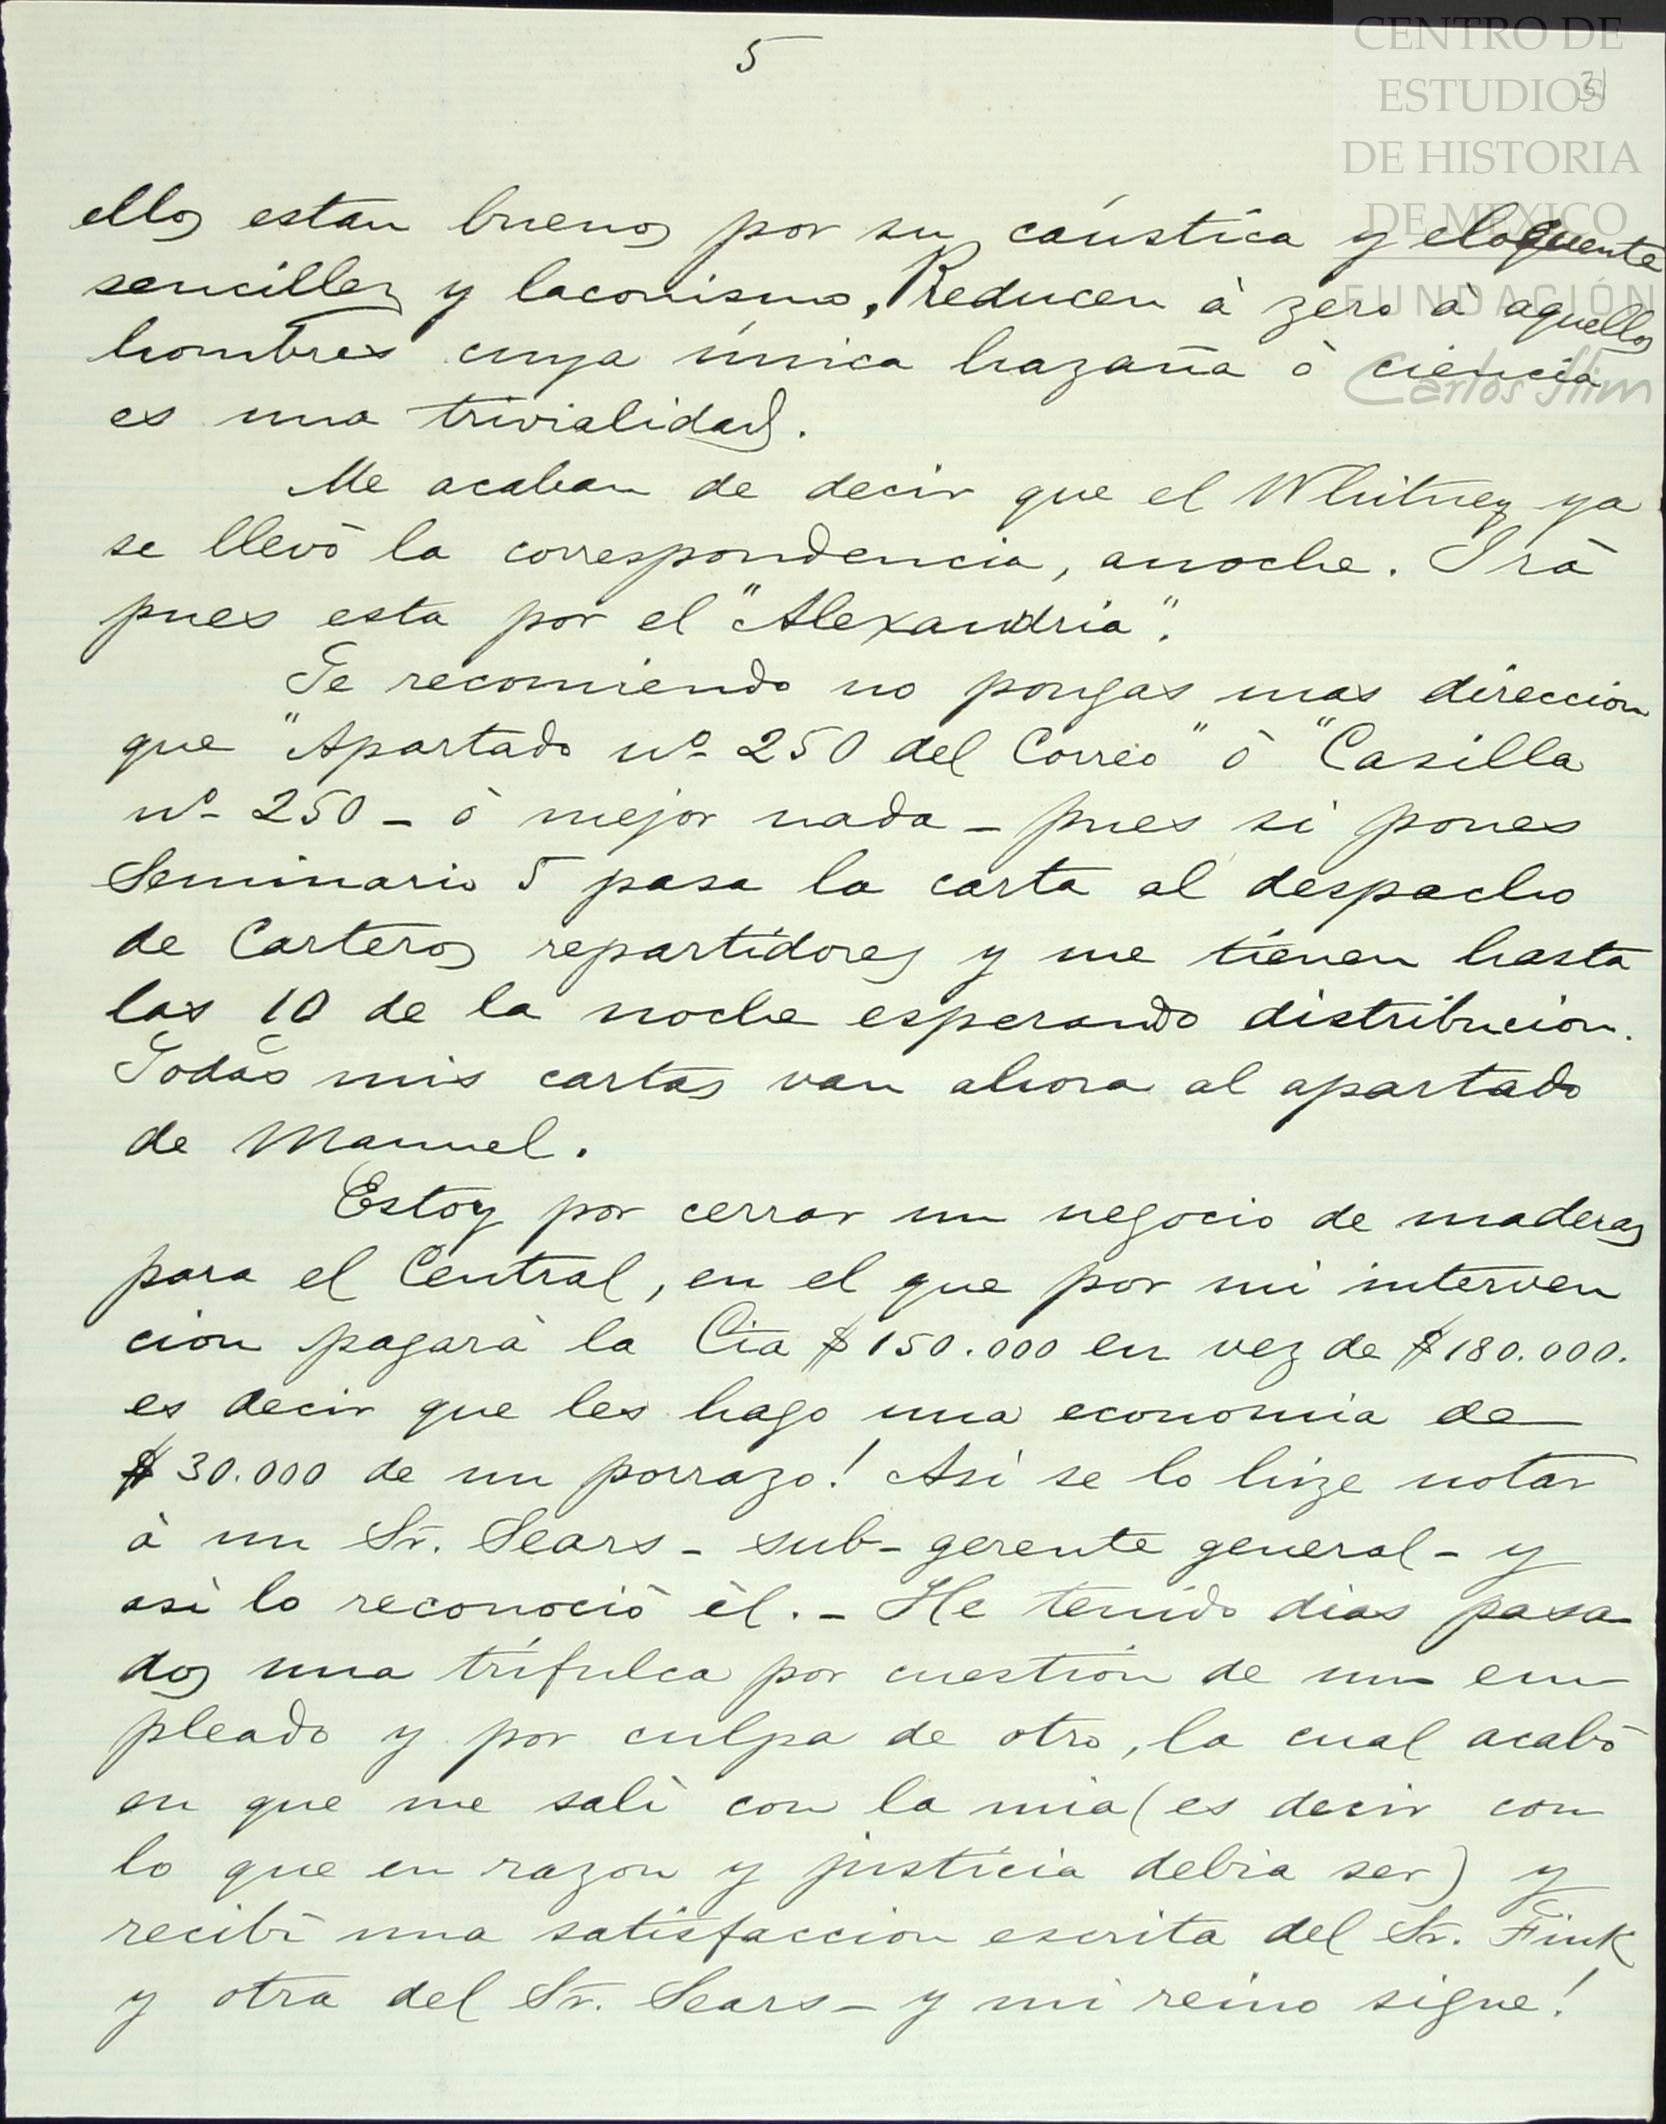 5
CENTRO DE
ESTUDIOS
DE HISTORIA
DE MÉXICO
FUNDACIÓN
Carlos Slim
31
ellos estan buenos por su cáustica y eloquente
sencillez y laconismo. Reducen à zero à aquellos
hombres cuya única hazaña ò ciencia
es una trivialidad.
Me acaban de decir que el Whitney ya
se llevò la correspondencia, anoche. Irà
pues esta por el "Alexandria".
Te recomiendo no pongas mas direccion
que "Apartado nº 250 del Correo" ò "Casilla
nº 250 - ò mejor nada - pues si pones
Seminario 5 pasa la carta al despacho
de Carteros repartidores y me tienen hasta
las 10 de la noche esperando distribucion.
Todas mis cartas van ahora al apartado
de Manuel.
Estoy por cerrar un negocio de maderas
para el Central, en el que por mi interven
cion pagarà la Cia $150.000 en vez de $180.000.
es decir que les hago una economia de
$30.000 de un porrazo! Asi se lo hize notar
à un Sr. Sears - sub-gerente general - y
asi lo reconociò èl. - He tenido dias pasa-
dos una trifulca por cuestion de un em
pleado y por culpa de otro, la cual acabò
en que me salì con la mia (es decir con
lo que en razon y justicia debia ser) y
recibì una satisfaccion escrita del Sr. Fink
y otra del Sr. Sears - y mi reino sigue!